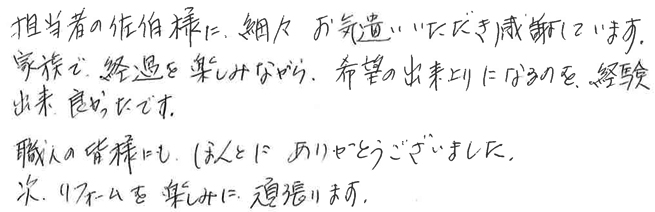 担当者の佐伯様に、細々 お気遣いいただき感謝しています。
家族で、経過を楽しみながら、希望の出来上りになるのを、経験
出来 良かったです。
職人の皆様にも、ほんとに ありがとうございました。
次、リフォームを楽しみに、頑張ります。